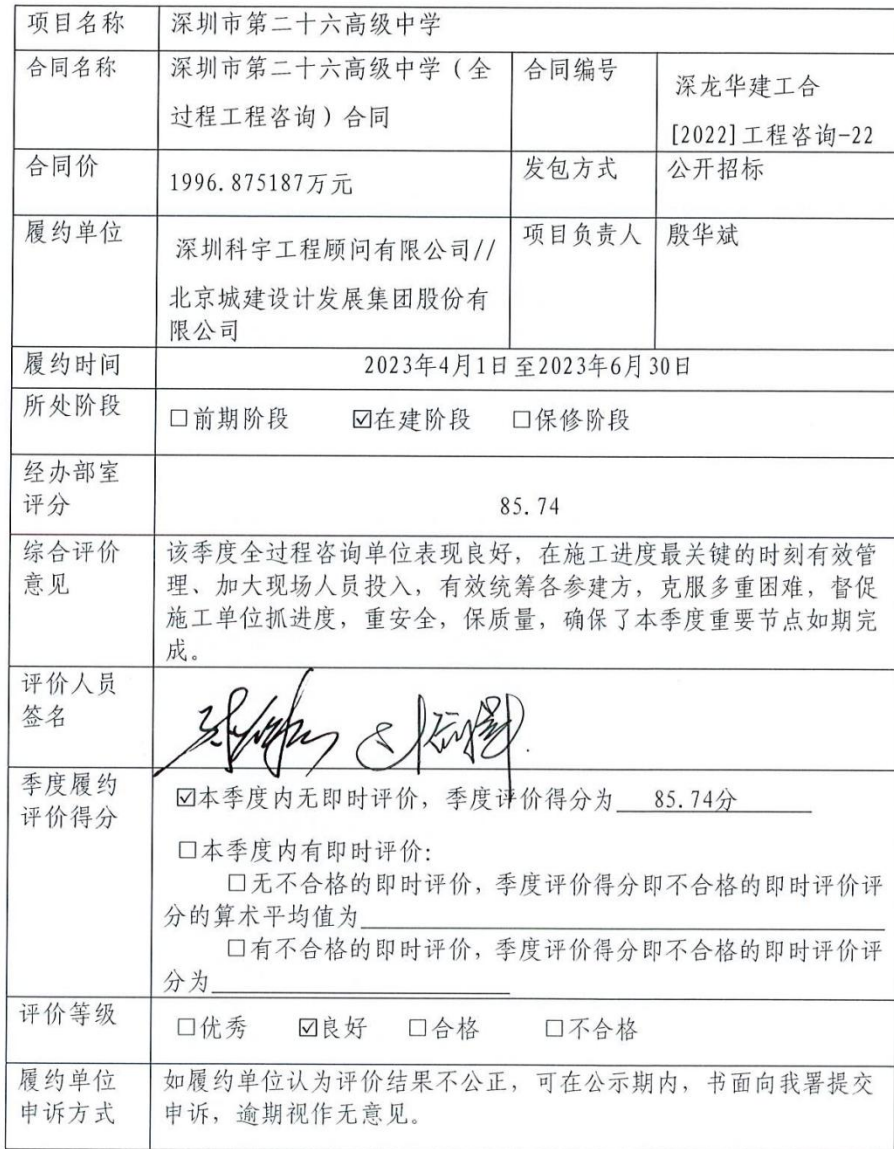 项目名称 深圳市第二十六高级中学
合同名称 深圳市第二十六高级中学（全
过程工程咨询）合同
合同编号 深龙华建工合
[2022]工程咨询-22
合同价 1996.875187万元 发包方式 公开招标
履约单位 深圳科宇工程顾问有限公司//
北京城建设计发展集团股份有
限公司
项目负责人 殷华斌
履约时间 2023年4月1日至2023年6月30日
所处阶段 □前期阶段 ☑在建阶段 □保修阶段
经办部室
评分
85.74
综合评价
意见
该季度全过程咨询单位表现良好，在施工进度最关键的时刻有效管
理、加大现场人员投入，有效统筹各参建方，克服多重困难，督促
施工单位抓进度，重安全，保质量，确保了本季度重要节点如期完
成。
评价人员
签名
季度履约
评价得分
☑本季度内无即时评价，季度评价得分为 85.74分
□本季度内有即时评价：
□无不合格的即时评价，季度评价得分即不合格的即时评价评
分的算术平均值为
□有不合格的即时评价，季度评价得分即不合格的即时评价评
分为
评价等级 □优秀 ☑良好 □合格 □不合格
履约单位
申诉方式
如履约单位认为评价结果不公正，可在公示期内，书面向我署提交
申诉，逾期视作无意见。